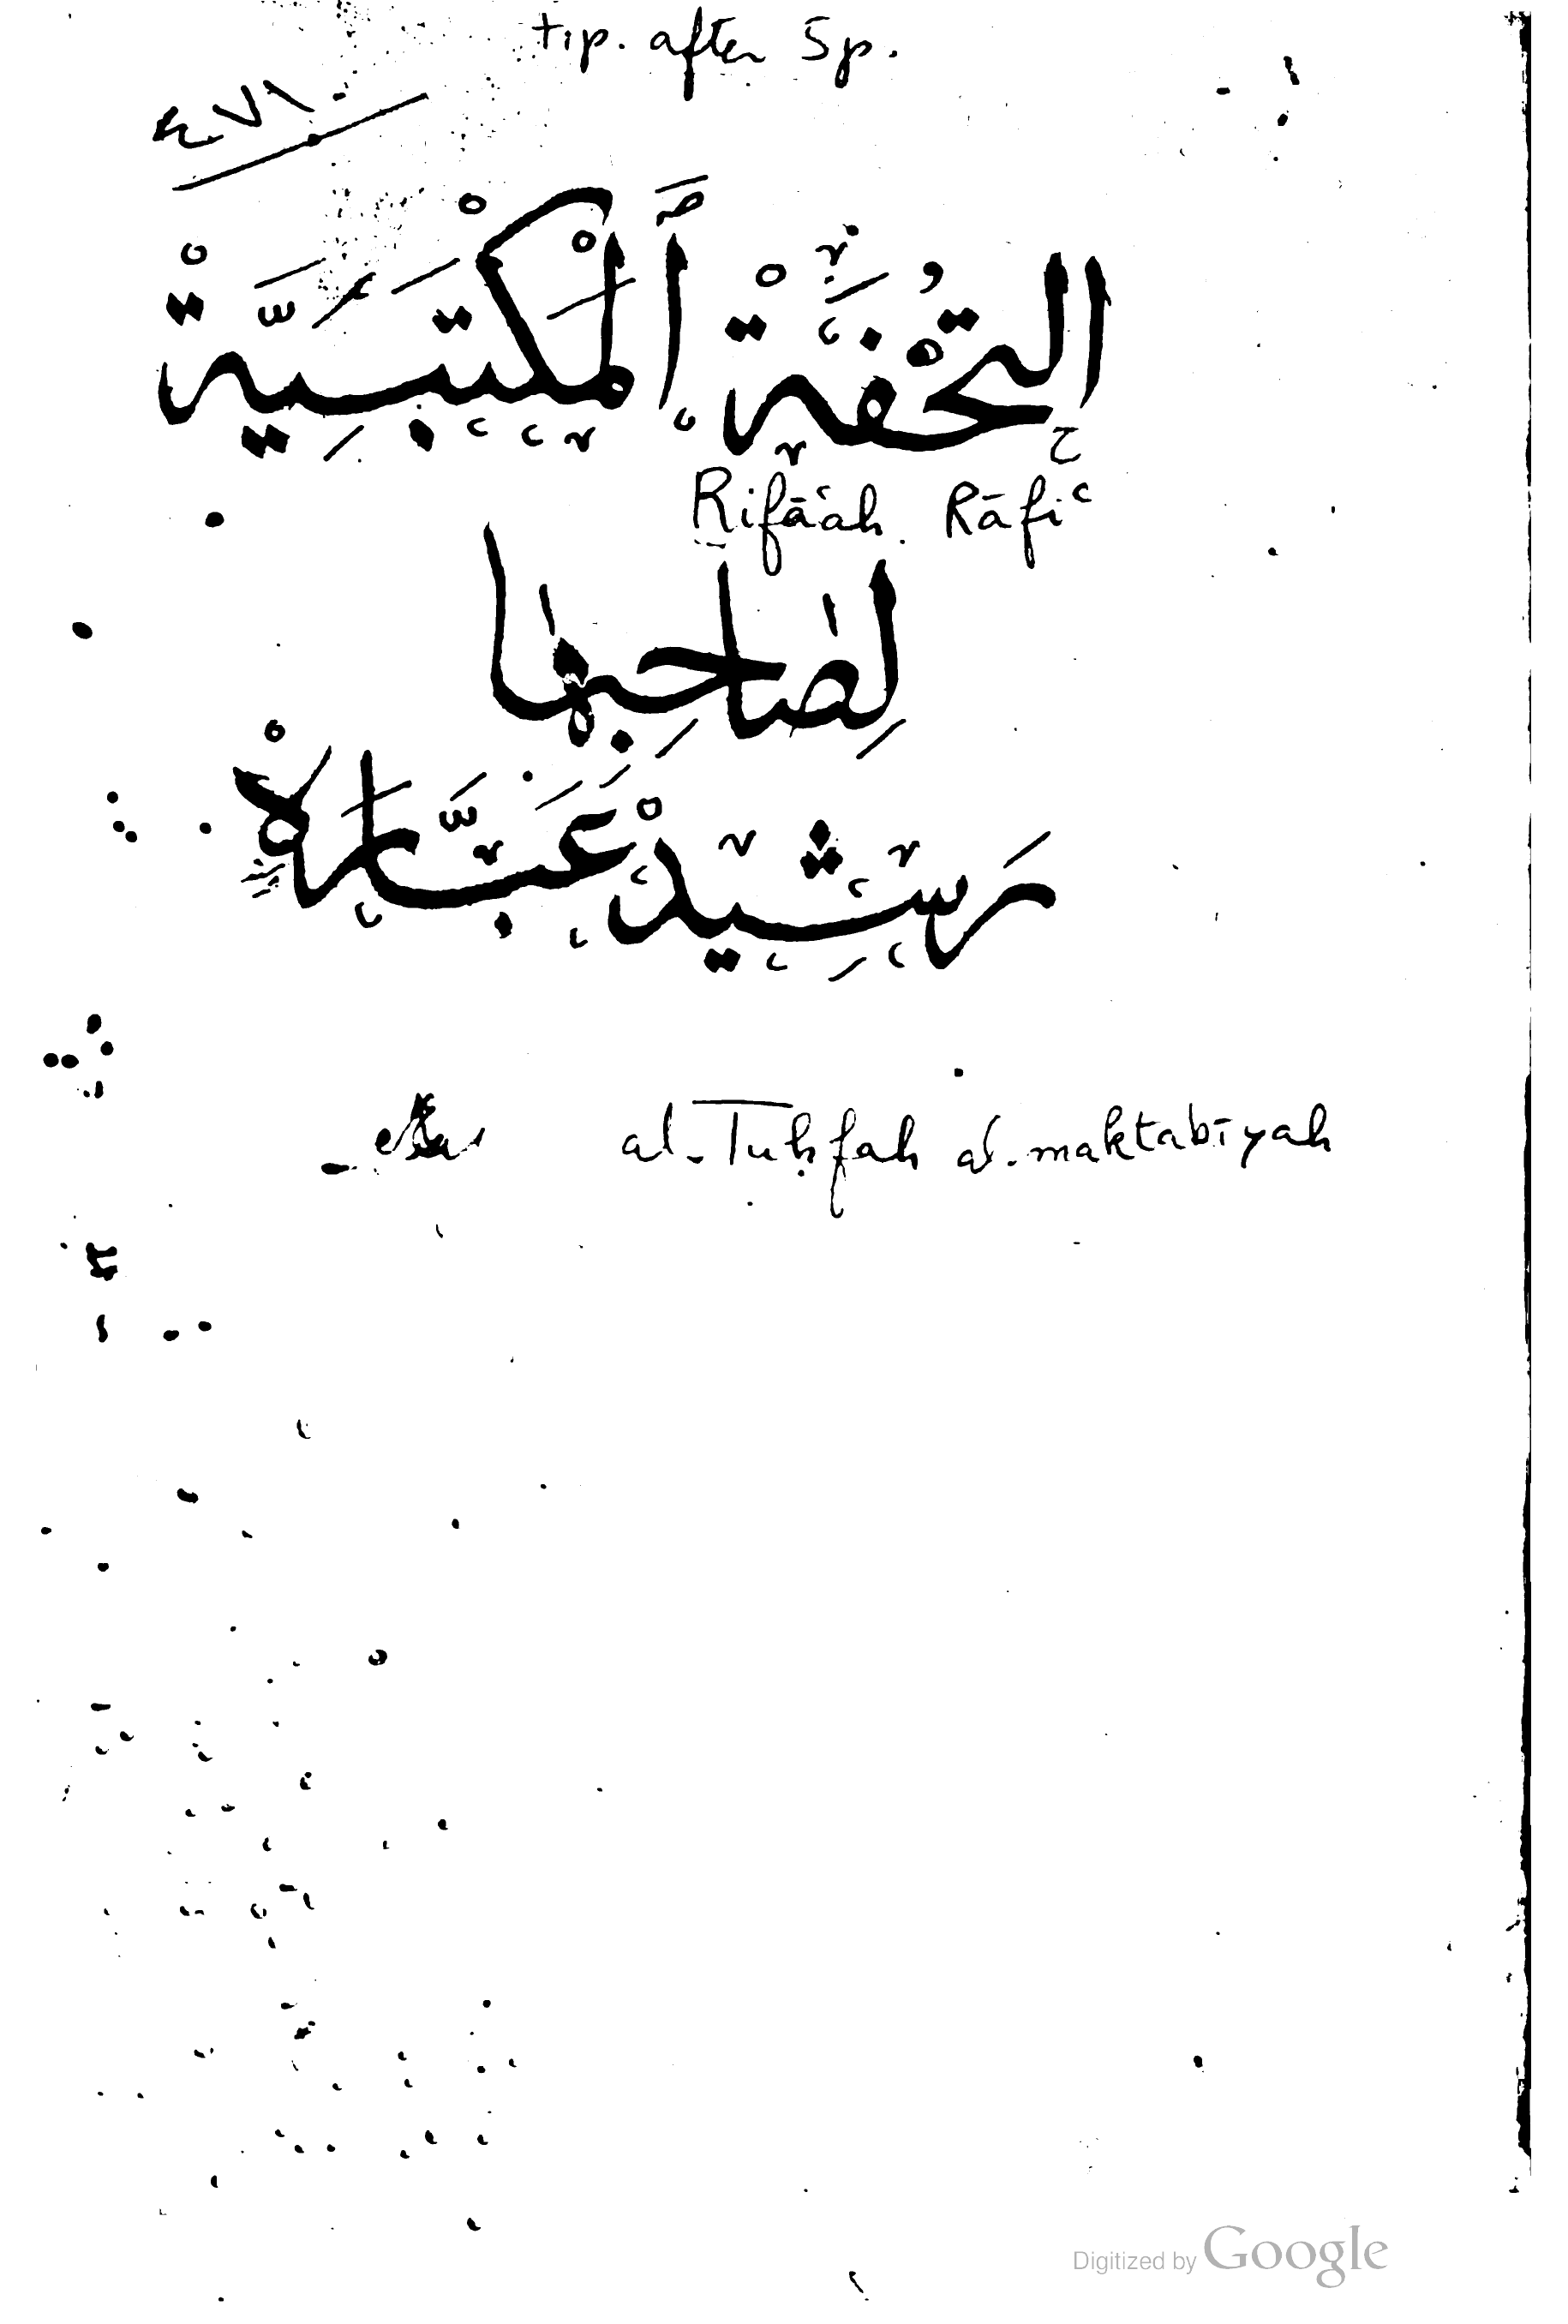 tip. after 5p.
٤٧١
التُّحْفَةْ اَلْمَكْتَبِيَّةْ
Rifāʿah Rāfiʿ
لِصَاحِبِهَا
رَشِيْدْ عَبَّارَهْ
al-Tuḥfah al-maktabīyah
Digitized by Google